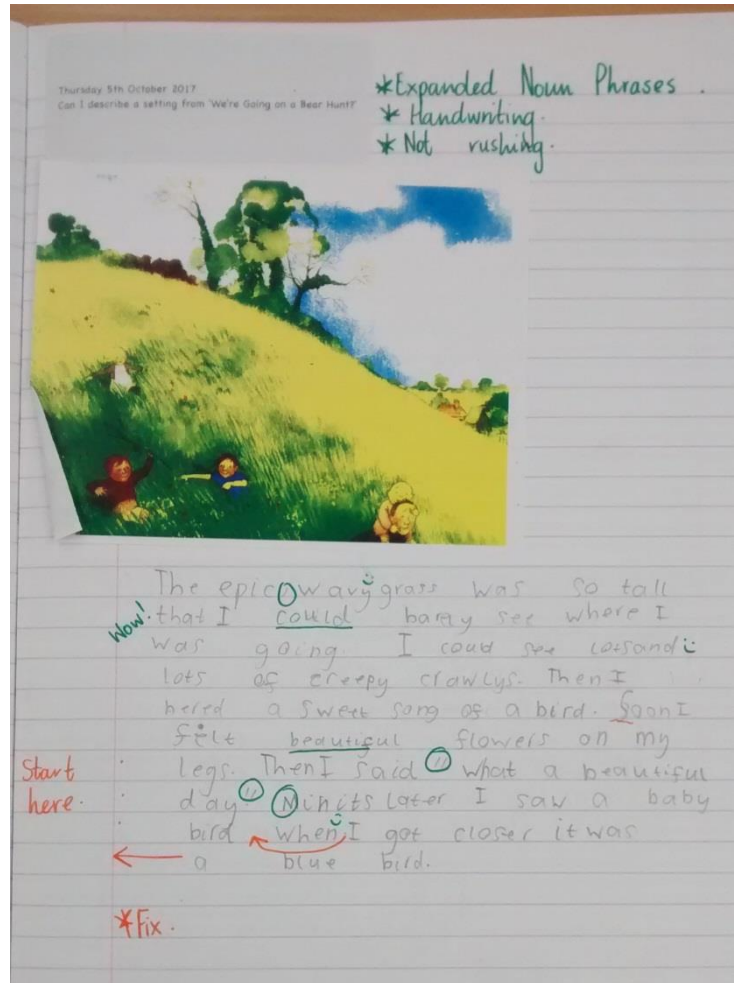 Thursday 5th October 2017
Can I describe a setting from 'We're Going on a Bear Hunt?'
*Expanded Noun Phrases.
*Handwriting.
*Not rushing.
The epic, wavy grass was so tall
Wow! that I could barely see where I
was going. I could see lots and
lots of creepy crawlys. Then I
hered a sweet song of a bird. Soon I
felt beautiful flowers on my
Start legs. Then I said " What a beautiful
here. day " Ninits later I saw a baby
bird when I got closer it was
a blue bird.
*Fix.